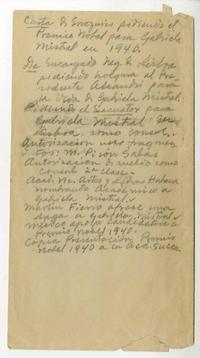 Carta de Errazuriz pidiendo el
Premio Nobel para Gabriela
Mistral en 1940.
De Encargado Neg. de Lisboa
pidiendo
para
la Vida de Gabriela Mistral.
el Senador
Gabriela Mistral
Lisboa, como consul.
Autorización
M. Picón Salas
Autorización de sueldo como
consul 2ª clase.
Acad. Na. Artes y Letras Habana
nombrando Académico a
Gabriela Mistral.
Martin Fierro ofrece una
daga a Gabriela Mistral
Mexico apoya candidatura a
Premio Nobel 1940.
Copia Presentación Premio
Nobel 1940 a la Acad. Sueca